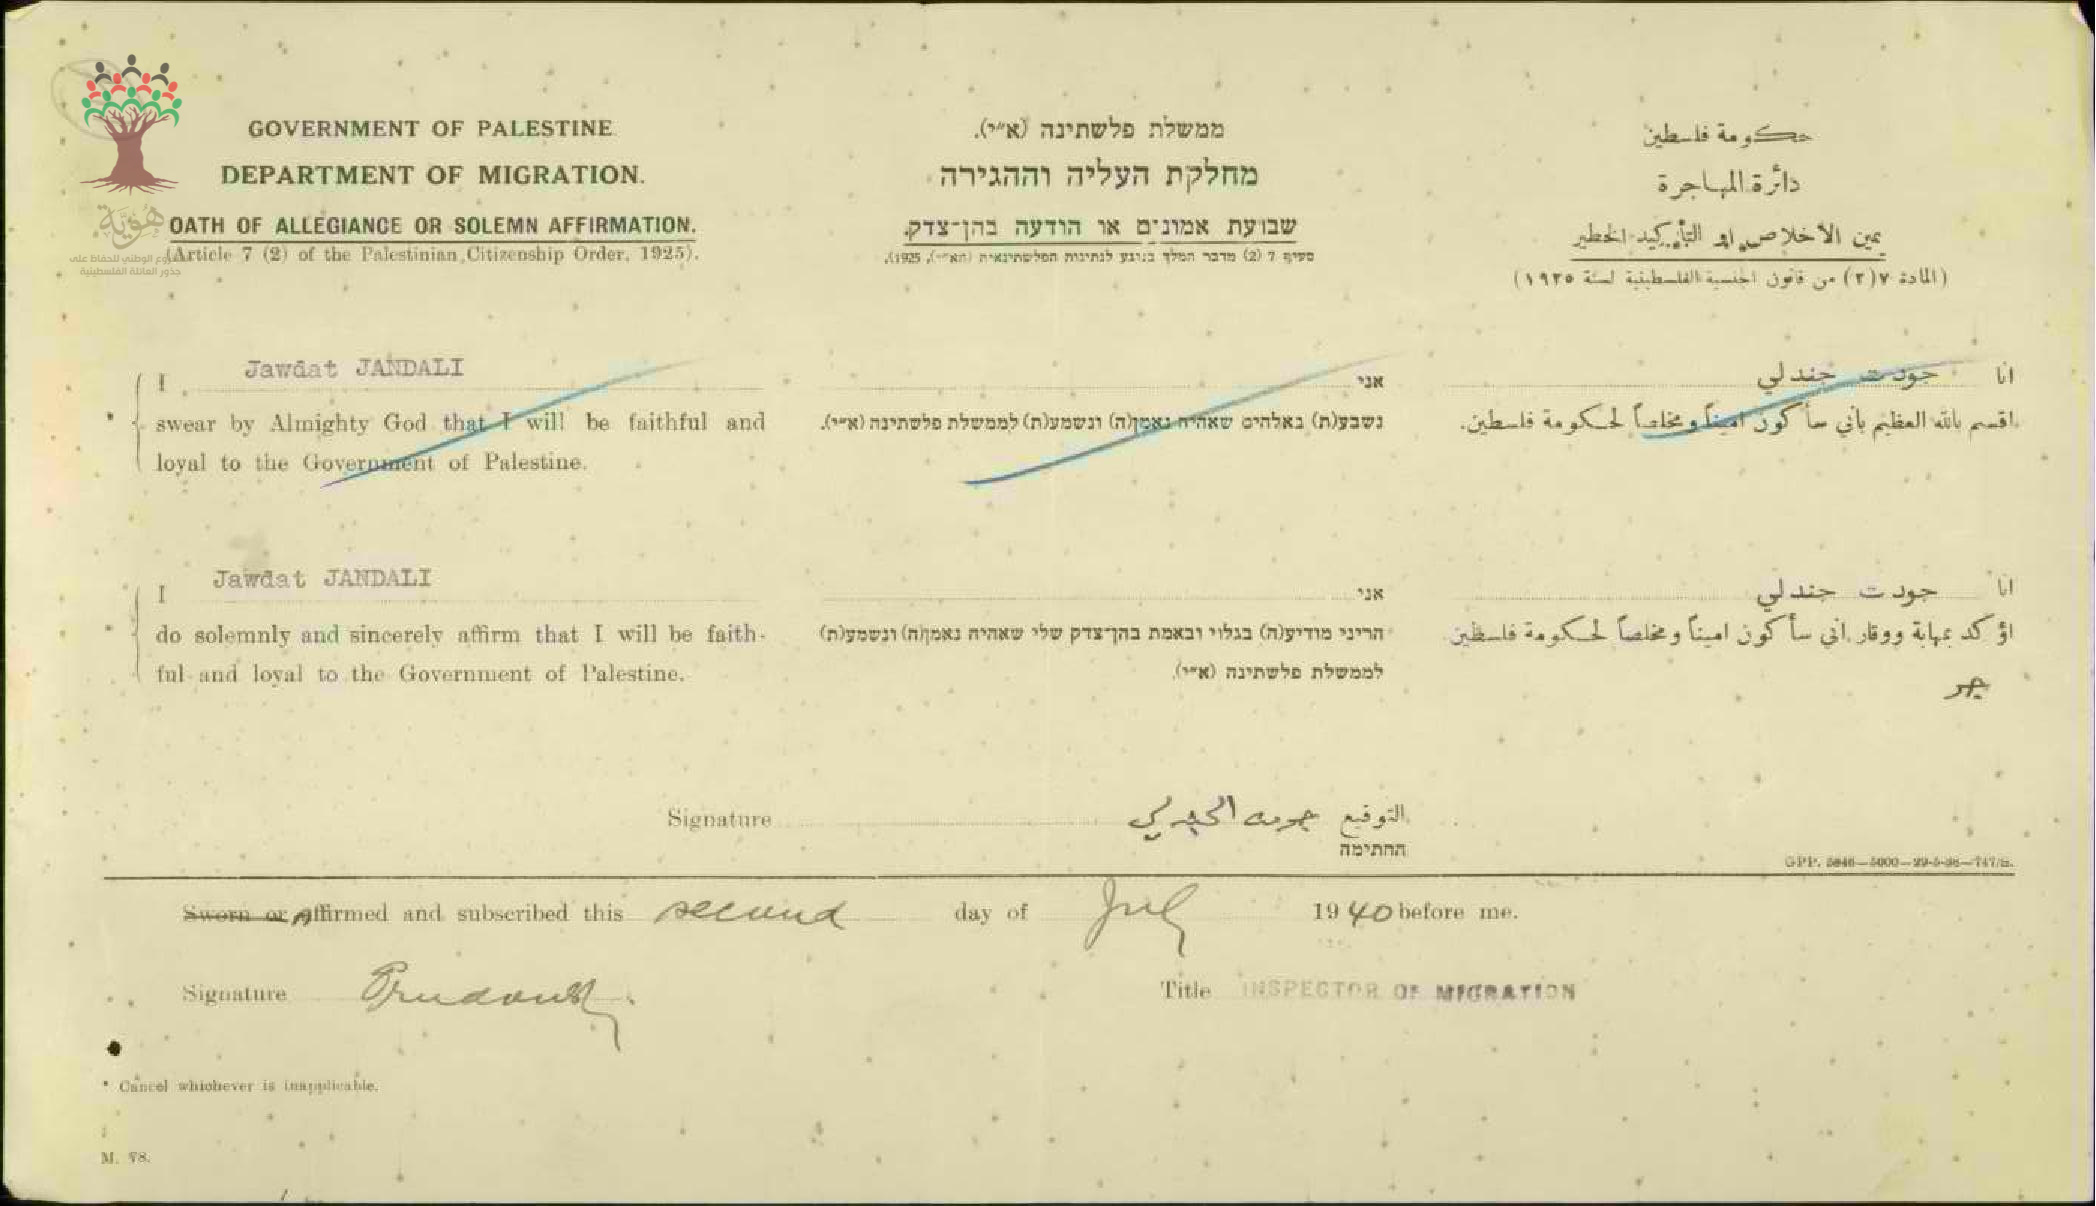 GOVERNMENT OF PALESTINE.
DEPARTMENT OF MIGRATION.
OATH OF ALLEGIANCE OR SOLEMN AFFIRMATION.
(Article 7 (2) of the Palestinian Citizenship Order, 1925).
ממשלת פלשתינה (א״י).
מחלקת העליה וההגירה
שבועת אמונים או הודעה בהן־צדק.
סעיף 7 (2) מדבר המלך בנוגע לנתינות הפלשתינאית (הא״י), 1925).
حكومة فلسطين
دائرة المهاجرة
يمين الاخلاص او التأكيد الخطير
(المادة ٧(٢) من قانون الجنسية الفلسطينية لسنة ١٩٢٥)
هُوِيَّة
المشروع الوطني للحفاظ على
جذور العائلة الفلسطينية
I Jawdat JANDALI
* swear by Almighty God that I will be faithful and
loyal to the Government of Palestine.
אני
נשבע(ת) באלהים שאהיה נאמן(ה) ונשמע(ת) לממשלת פלשתינה (א״י).
انا جودت جندلي
اقسم بالله العظيم باني سأكون اميناً ومخلصاً لحكومة فلسطين.
I Jawdat JANDALI
* do solemnly and sincerely affirm that I will be faith-
ful and loyal to the Government of Palestine.
אני
הריני מודיע(ה) בגלוי ובאמת בהן־צדק שלי שאהיה נאמן(ה) ונשמע(ת)
לממשלת פלשתינה (א״י).
انا جودت جندلي
اؤكد بمهابة ووقار اني سأكون اميناً ومخلصاً لحكومة فلسطين
Signature جودت الجندلي التوقيع
החתימה
GPP. 5846—5000—29-5-36—747/S.
Sworn or Affirmed and subscribed this second day of July 1940 before me.
Signature Title INSPECTOR OF MIGRATION
* Cancel whichever is inapplicable.
M. 78.